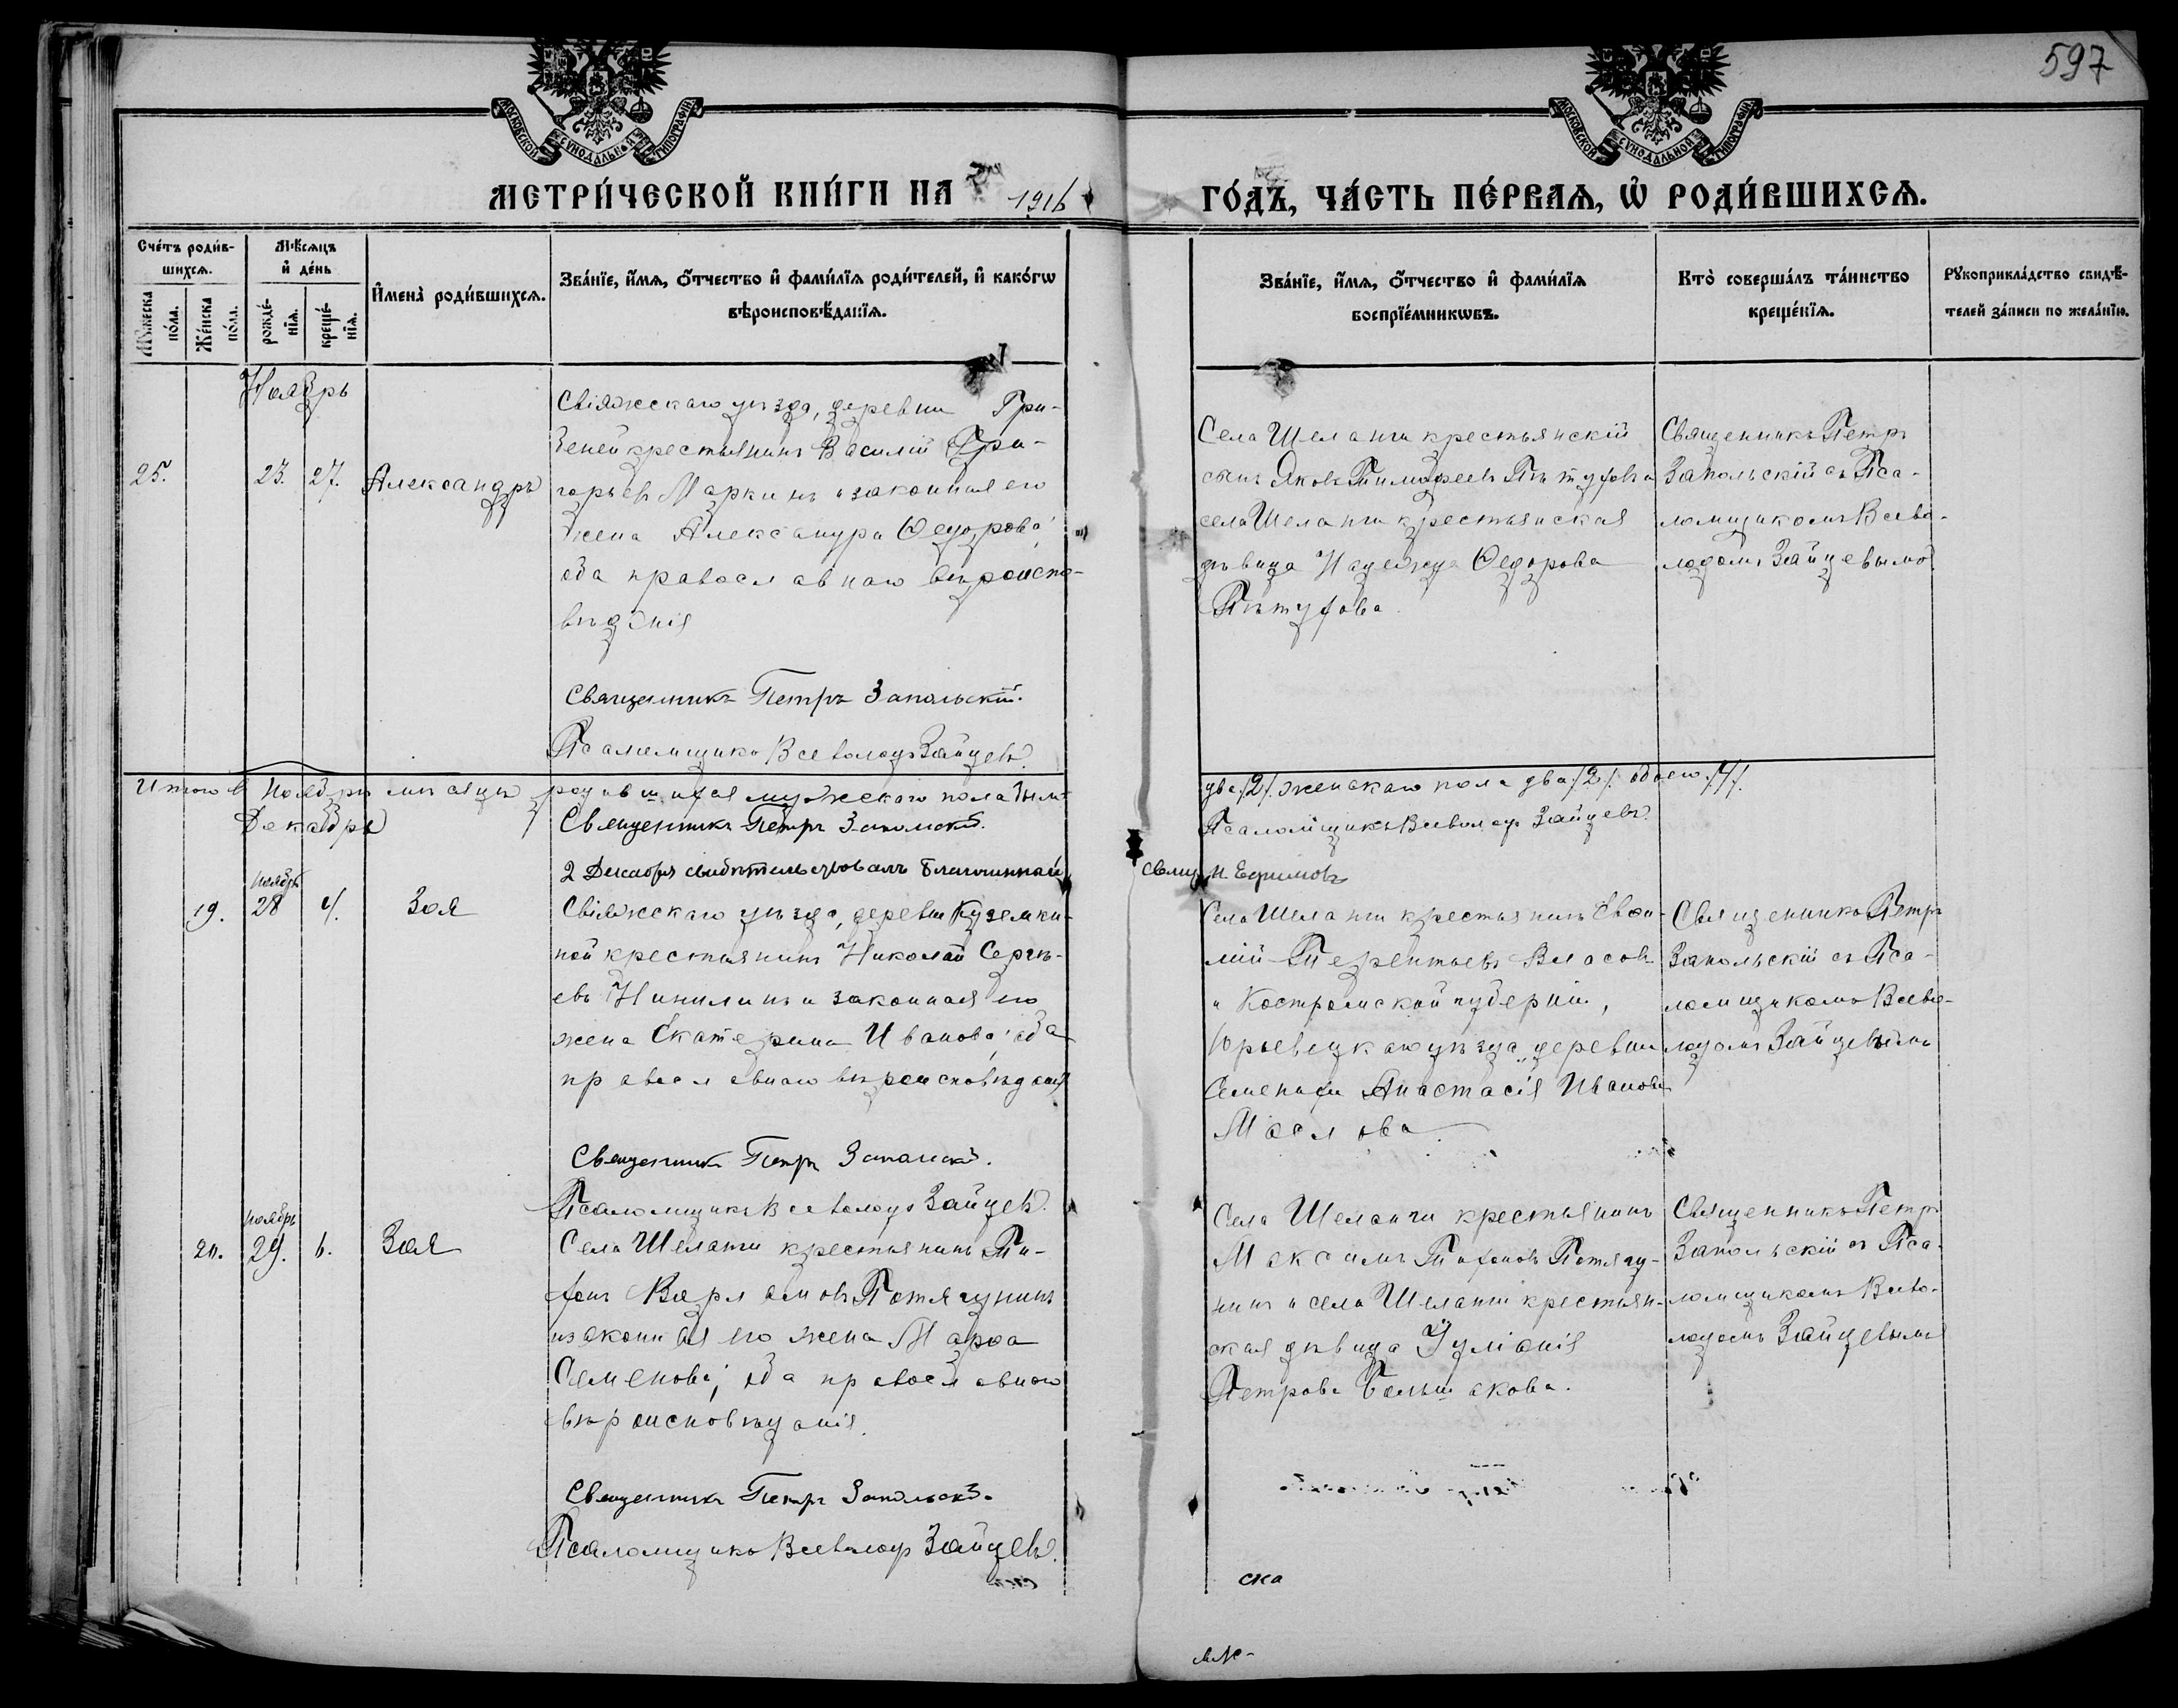 597
МОСКОВСКОЙ СѴНОДАЛЬНОЙ ТИПОГРАФІИ
МОСКОВСКОЙ СѴНОДАЛЬНОЙ ТИПОГРАФІИ
МЕТРИ́ЧЕСКОЙ КНИ́ГИ НА 1916
ГО́ДЪ, ЧА́СТЬ ПЕ́РВАѦ, Ѡ҆ РОДИ́ВШИХСѦ.
Сче́тъ роди́в-
шихсѧ.
Мꙋ́жеска
по́ла.
Же́нска
по́ла.
Мѣ́сѧцъ
и҆ де́нь
рожде́-
нїѧ.
креще́-
нїѧ.
И҆мена̀ роди́вшихсѧ.
Зва́нїе, и҆́мѧ, ѻ҆́тчество и҆ фами́лїѧ роди́телей, и҆ како́гѡ
вѣроисповѣ́данїѧ.
Зва́нїе, и҆́мѧ, ѻ҆́тчество и҆ фами́лїѧ
воспрїе́мникѡвъ.
Кто̀ соверша́лъ та́инство
креще́нїѧ.
Рꙋкоприкла́дство свидѣ́-
телей за́писи по жела́нїю.
Ноябрь
25.
23.
27.
Александръ
Свіяжскаго уѣзда, деревни Гри-
беней крестьянинъ Василій Гри-
горьевъ Маркинъ и законная его
жена Александра Ѳедорова;
оба православнаго вѣроиспо-
вѣданія
Священникъ Петръ Запольскій.
Псаломщикъ Всеволодъ Зайцевъ.
Села Шеланги крестьянскій
сынъ Яковъ Тимофеевъ Пѣтуховъ и
села Шеланги крестьянская
дѣвица Надежда Ѳедорова
Пѣтухова.
Священникъ Петръ
Запольскій съ Пса-
ломщикомъ Всево-
лодомъ Зайцевымъ
Итого в Ноябрѣ мѣсяцѣ родившихся мужескаго пола было
два /2/. женскаго пола два /2/. обоего /4/.
Декабрь
Священникъ Петръ Запольскій.
Псаломщикъ Всеволодъ Зайцевъ.
2 Декабря свидѣтельствовалъ Благочинный
свящ. Н. Ефимовъ
19.
Ноябрь
28
4.
Зоя
Свіяжскаго уѣзда, деревни Куземки-
ной крестьянинъ Николай Сергѣ-
евъ Нинилинъ и законная его
жена Екатерина Иванова; оба
православнаго вѣроисповѣданія
Священникъ Петръ Запольскій.
Псаломщикъ Всеволодъ Зайцевъ.
Села Шеланги крестьянинъ Евѳи-
мій Терентьевъ Власовъ
и Костромской губерніи,
Юрьевецкаго уѣзда, деревни
Семенихи Анастасія Иванова
Маслова.
Священникъ Петръ
Запольскій съ Пса-
ломщикомъ Всево-
лодомъ Зайцевымъ
20.
Ноябрь
29.
6.
Зоя
Села Шеланги крестьянинъ Ти-
хонъ Варламовъ Потягунинъ
и законная его жена Марѳа
Семенова; оба православнаго
вѣроисповѣданія.
Священникъ Петръ Запольскій.
Псаломщикъ Всеволодъ Зайцевъ.
Села Шеланги крестьянинъ
Максимъ Тихоновъ Потягу-
нинъ и села Шеланги крестьян-
ская дѣвица Іуліанія
Петрова Большакова.
Священникъ Петръ
Запольскій съ Пса-
ломщикомъ Всево-
лодомъ Зайцевымъ
ска